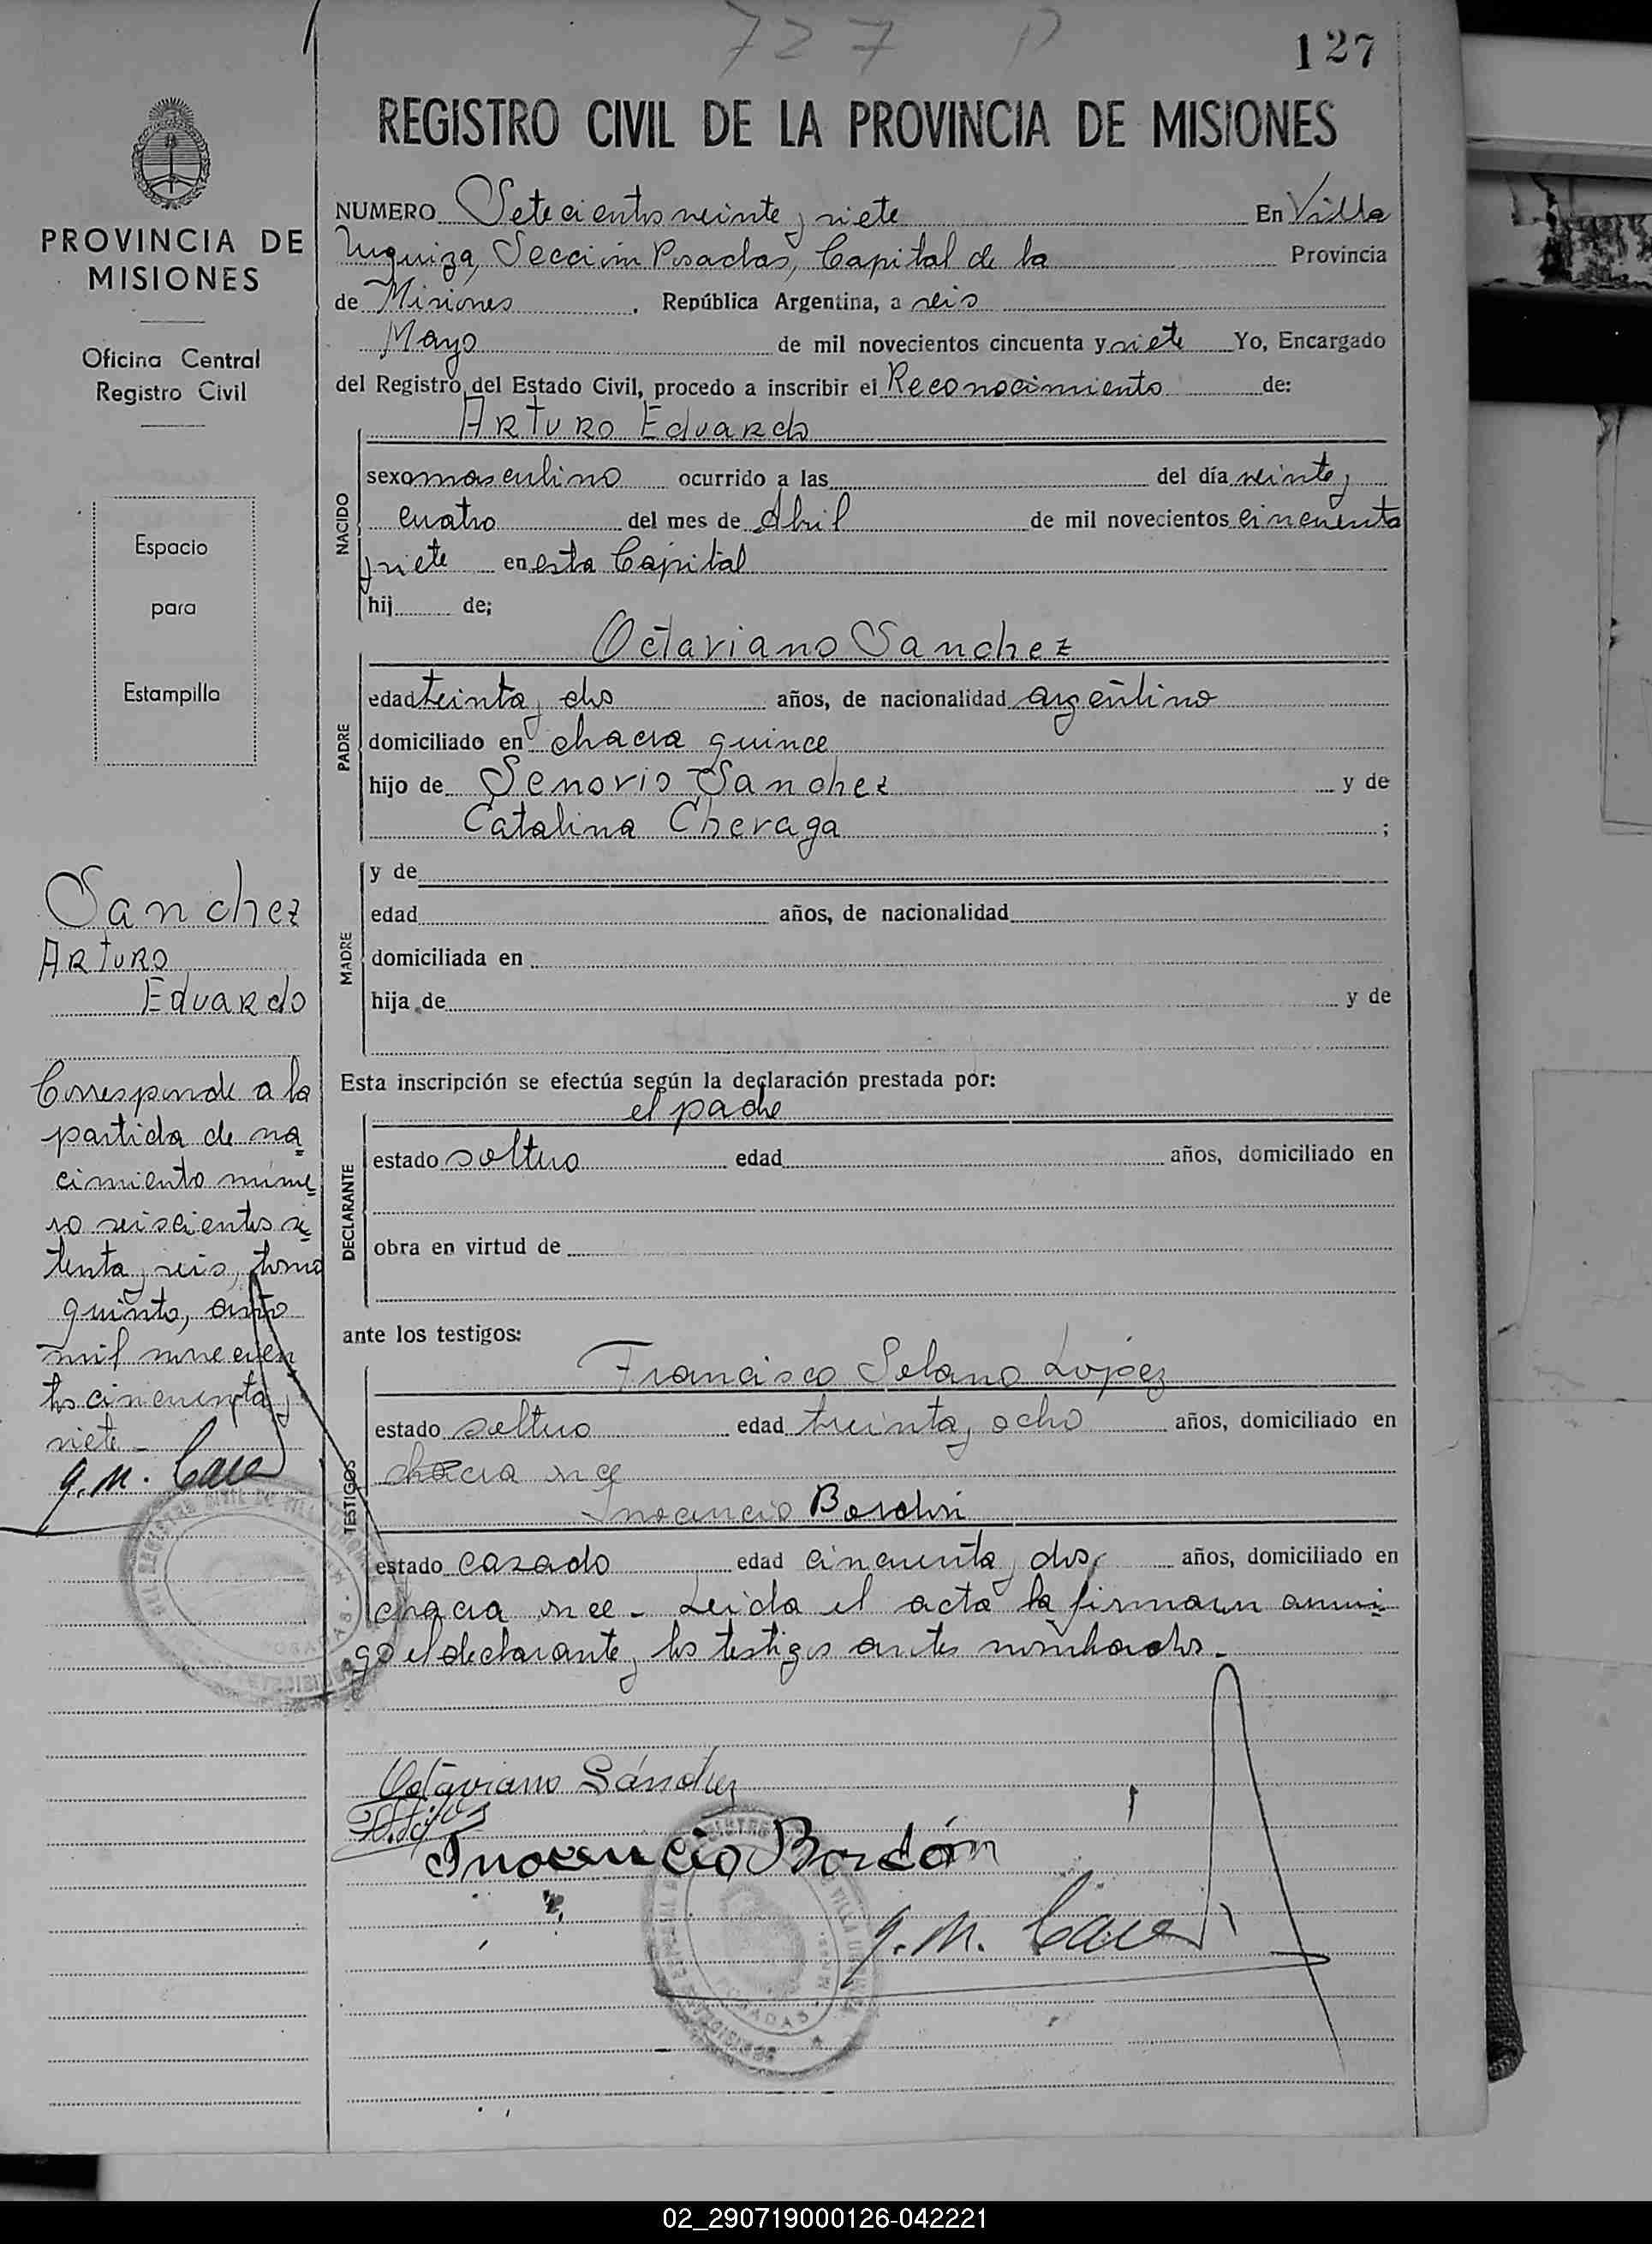 727 P
127
REGISTRO CIVIL DE LA PROVINCIA DE MISIONES
PROVINCIA DE
MISIONES
Oficina Central
Registro Civil
Espacio
para
Estampilla
Sanchez
Arturo
Eduardo
Corresponde a la
partida de na
cimiento núme
ro seiscientos se
tenta y seis, tomo
quinto, año
mil novecien
tos cincuenta y
siete -
NUMERO Setecientos veinte y siete En Villa
Urquiza, Sección Posadas, Capital de la Provincia
de Misiones. República Argentina, a seis
Mayo de mil novecientos cincuenta y siete Yo, Encargado
del Registro del Estado Civil, procedo a inscribir el Reconocimiento de:
Arturo Eduardo
NACIDO
sexo masculino ocurrido a las del día veinte y
cuatro del mes de Abril de mil novecientos cincuenta
y siete en esta Capital
hij de;
Octaviano Sanchez
PADRE
edad treinta y dos años, de nacionalidad argentino
domiciliado en chacra quince
hijo de Senovio Sanchez y de
Catalina Cheraga ;
MADRE
y de
edad años, de nacionalidad
domiciliada en
hija de y de
Esta inscripción se efectúa según la declaración prestada por:
el padre
DECLARANTE
estado soltero edad años, domiciliado en
obra en virtud de
ante los testigos:
Francisco Solano Lopez
TESTIGOS
estado soltero edad treinta y ocho años, domiciliado en
chacra once
Inocencio Bordón
estado casado edad cincuenta y dos años, domiciliado en
chacra once - Leida el acta la firmaron conmi
go el declarante y los testigos antes nombrados.-
Octaviano Sánchez
Inocencio Bordón
02_290719000126-042221